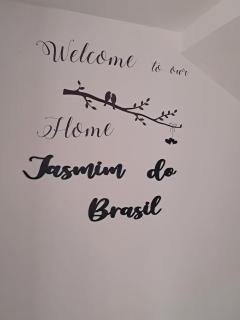 Welcome to our
Home
Jasmim do
Brasil